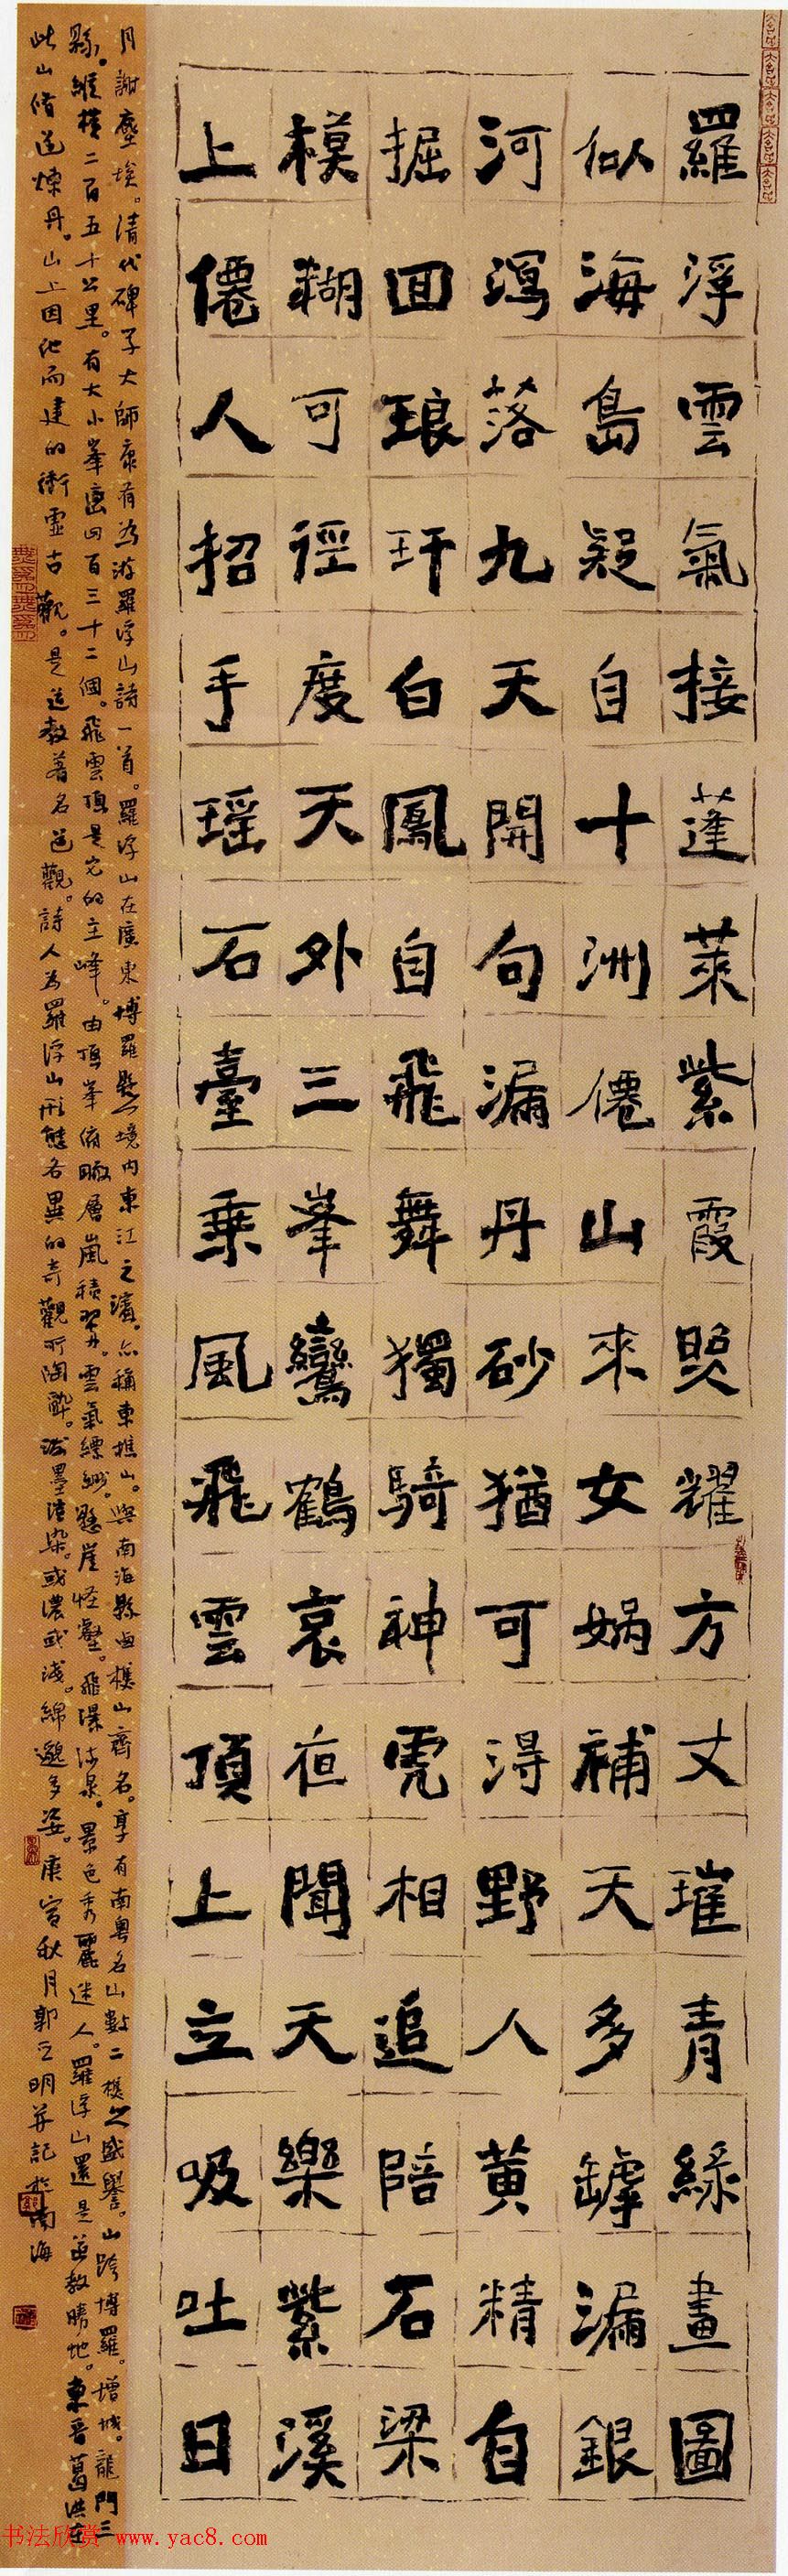 羅浮雲氣接蓬萊紫霞照耀方丈璀青綠畫圖
似海島疑自十洲僊山來女媧補天多罅漏銀
河瀉落九天開句漏丹砂猶可得野人黃精自
掘回琅玕白鳳自飛舞獨騎神虎相追陪石梁
模糊可徑度天外三峯鸞鶴哀夜聞天樂紫溪
上僊人招手瑤石臺乘風飛雲頂上立吸吐日
月謝塵埃。清代碑學大師康有為游羅浮山詩一首。羅浮山在廣東博羅縣境内東江之濱。亦稱東樵山。與南海縣西樵山齊名。享有南粤名山數二樵之盛譽。山跨博羅。增城。龍門三
縣。縱橫二百五十公里。有大小峯巒四百三十二個。飛雲頂是它的主峰。由頂峯俯瞰層嵐積翠。雲氣縹緲。懸崖怪壑。飛瀑流泉。景色秀麗迷人。羅浮山還是道教勝地。東晉葛洪在
此山脩道煉丹。山上因他而建的衝虛古觀。是道教著名道觀。詩人為羅浮山形態各異的奇觀所陶醉。潑墨渲染。或濃或淺。綿邈多姿。庚寅秋月郭亞明并記於南海
书法欣赏 www.yac8.com